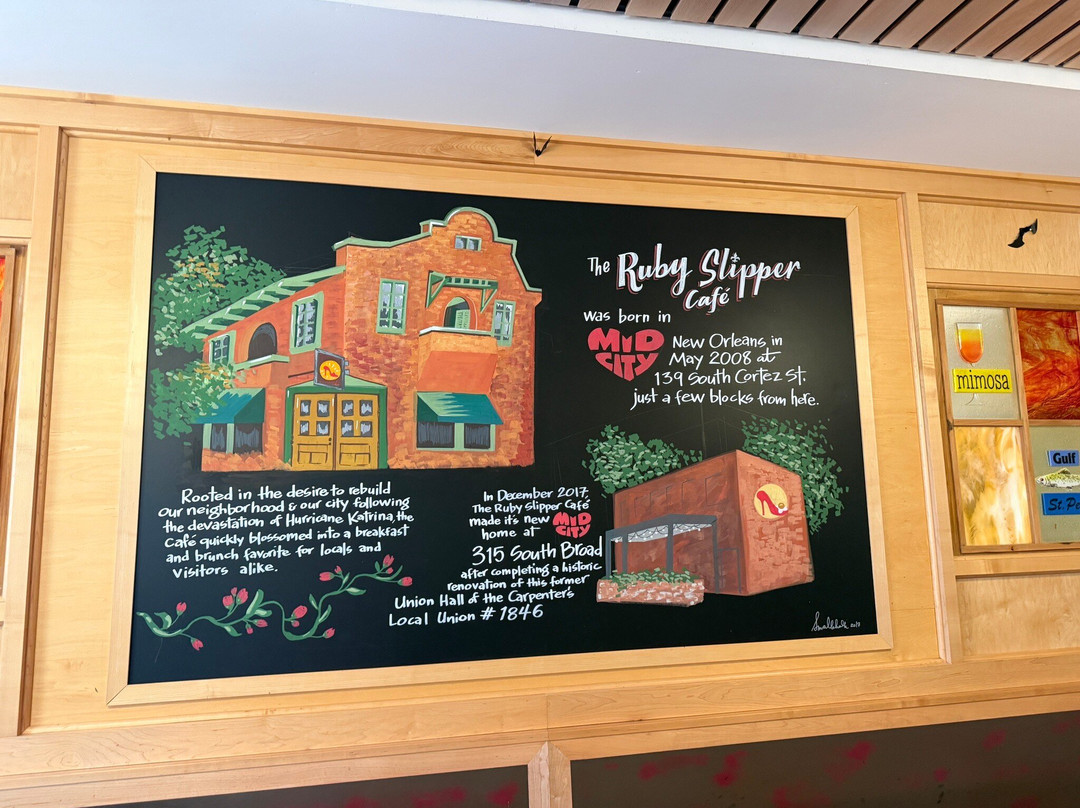 The Ruby Slipper
Café
was born in
MID
CITY
New Orleans, in
May 2008 at
139 South Cortez St.
just a few blocks from here.
Rooted in the desire to rebuild
our neighborhood & our city following
the devastation of Hurricane Katrina, the
Café quickly blossomed into a breakfast
and brunch favorite for locals and
visitors alike.
In December 2017,
The Ruby Slipper Café
made it's new
MID
CITY
home at
315 South Broad
after completing a historic
renovation of this former
Union Hall of the Carpenters
Local Union # 1846
mimosa
Gulf